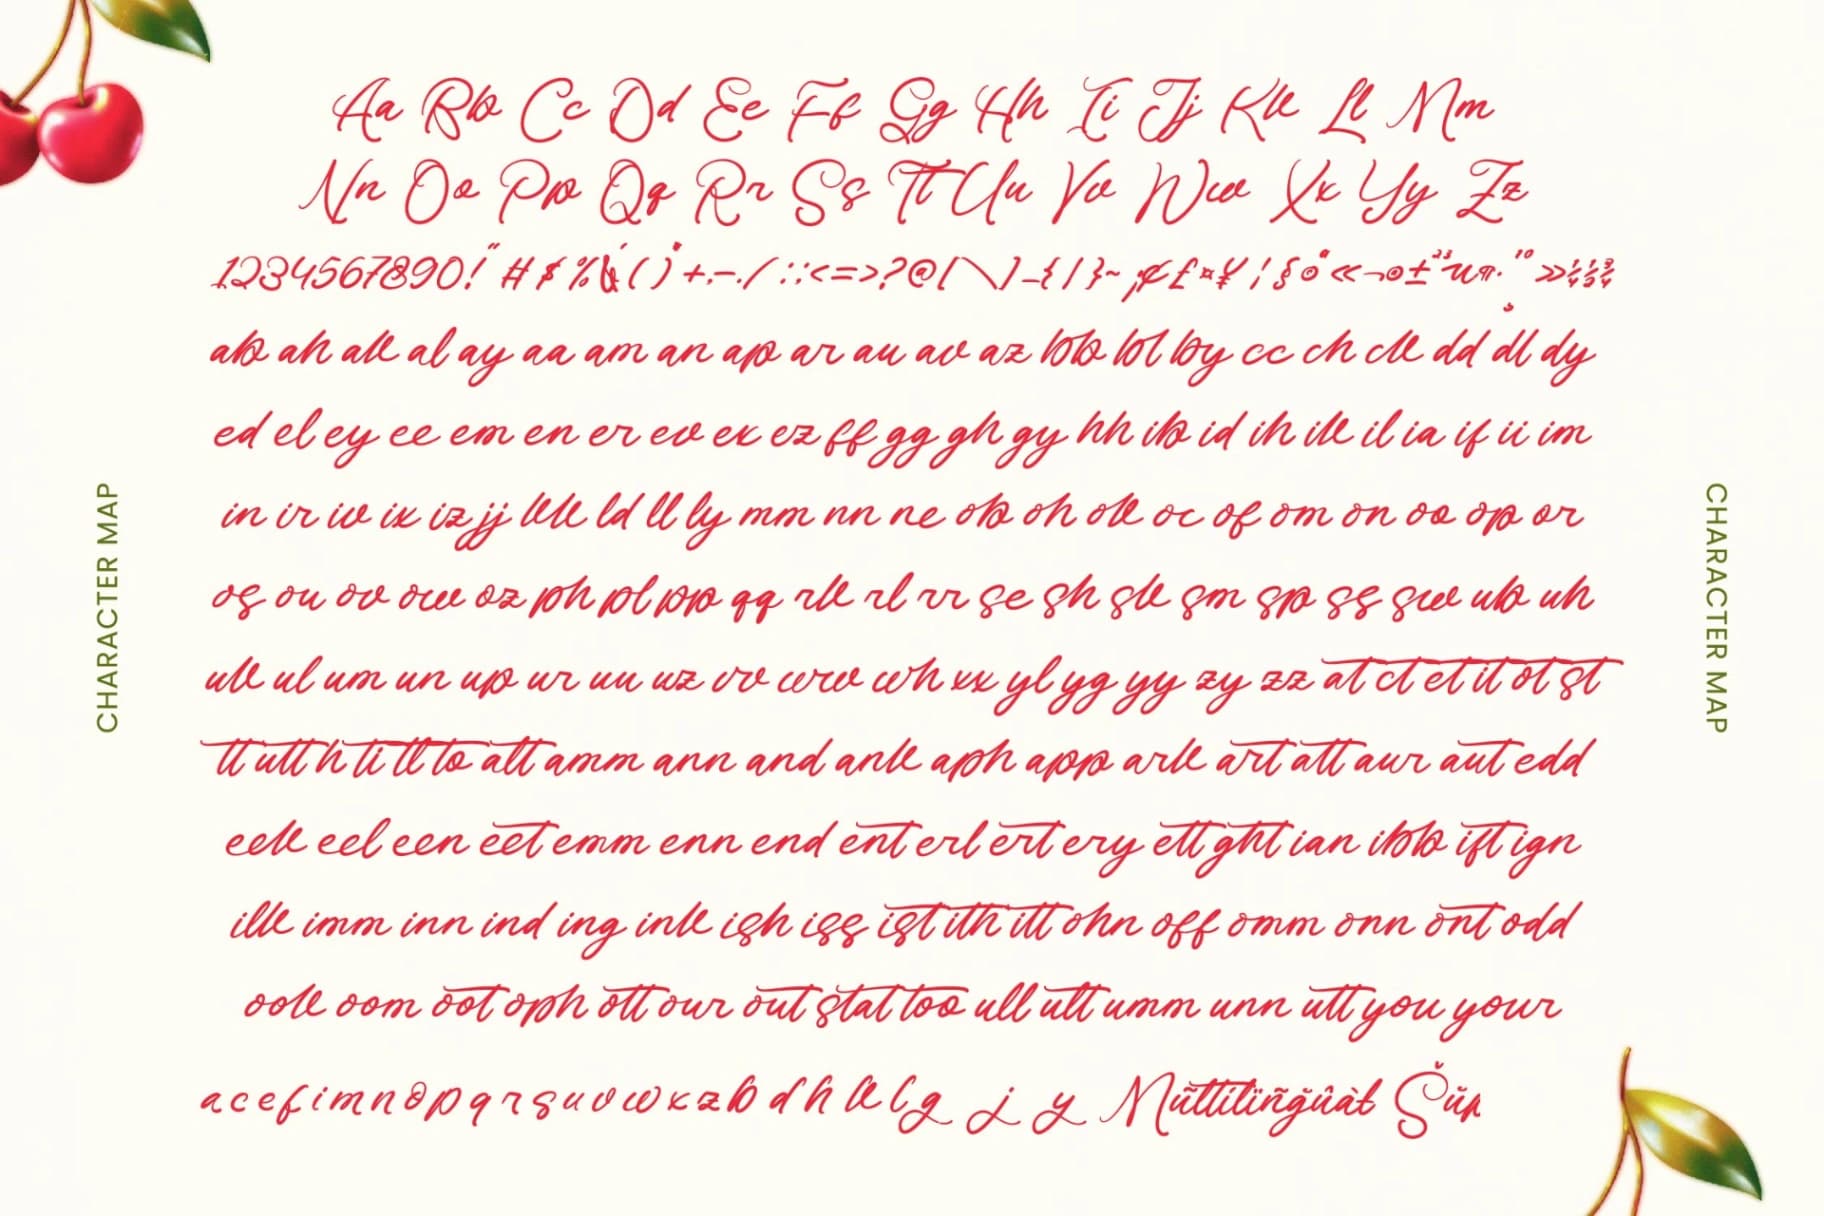 Aa Bb Cc Dd Ee Ff Gg Hh Ii Jj Kk Ll Mm
Nn Oo Pp Qq Rr Ss Tt Uu Vv Ww Xx Yy Zz
1234567890!"#$%&'()*+,-./:;<=>?@[\]_{|}~¡¢£¤¥¦§¨©ª«¬®¯°±²³´µ¶·¸¹º»¼½¾
ab ah ak al ay aa am an ap ar au av az bb bl by cc ch ck dd dl dy
ed el ey ee em en er ev ex ez ff gg gh gy hh ib id ih ik il ia if ii im
in ir iv ix iz jj kk ld ll ly mm nn ne ob oh ok oc of om on oo op or
os ou ov ow oz ph pl pp qq rk rl rr se sh sk sm sp ss sw ub uh
uk ul um un up ur uu uz vv ww wh xx yl yg yy zy zz at ct et it ot st
tt utt h ti tl to att amm ann and ank aph app ark art att aur aut edd
eek eel een eet emm enn end ent erl ert ery ett ght ian ibb ift ign
ilk imm inn ind ing ink ish iss ist ith itt ohn off omm onn ont odd
ook oom oot oph ott our out stat too ull ult umm unn utt you your
a c e f i m n o p q r s u v w x z b d h k l g j y
CHARACTER MAP
CHARACTER MAP